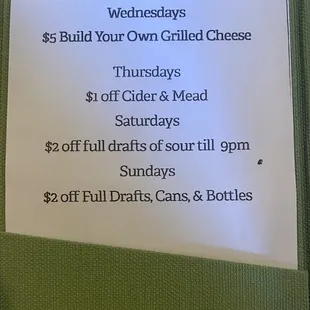 Wednesdays
$5 Build Your Own Grilled Cheese
Thursdays
$1 off Cider & Mead
Saturdays
$2 off full drafts of sour till 9pm
Sundays
$2 off Full Drafts, Cans, & Bottles